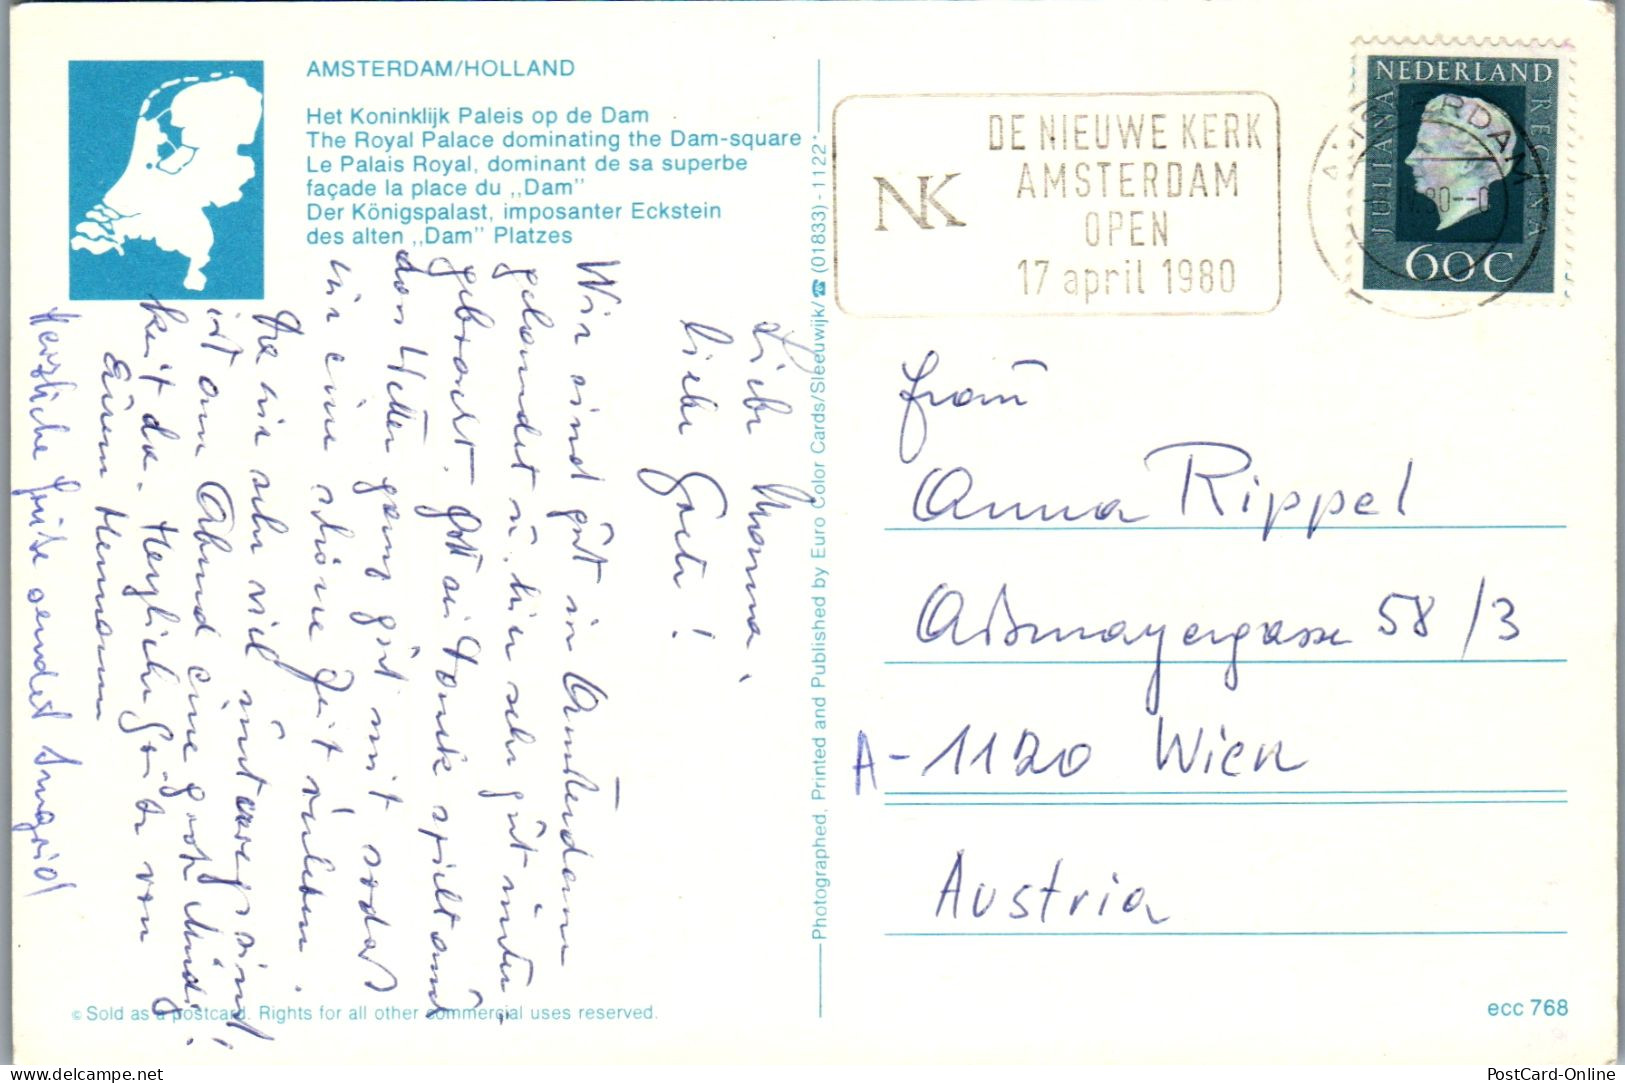 AMSTERDAM/HOLLAND
Het Koninklijk Paleis op de Dam
The Royal Palace dominating the Dam-square
Le Palais Royal, dominant de sa superbe
façade la place du ,,Dam"
Der Königspalast, imposanter Eckstein
des alten ,,Dam" Platzes
Liebe Mama,
liebe Greti!
Wir sind gut in Amsterdam
gelandet u. hier sehr gut unter-
gebracht. Gott sei Dank spielt auch
das Wetter ganz gut mit sodaß
wir eine schöne Zeit haben.
Da wir sehr viel unterwegs sind,
ist am Abend eine große Müdig-
keit da. Herzliche Grüße von
Eurem Hermann
Herzliche Grüße sendet Ingrid
© Sold as a postcard. Rights for all other commercial uses reserved.
Photographed, Printed and Published by Euro Color Cards/Sleeuwijk/☎ (01833) - 1122
NK
DE NIEUWE KERK
AMSTERDAM
OPEN
17 april 1980
AMSTERDAM
NEDERLAND
JULIANA
REGINA
60C
Frau
Anna Rippel
Aßmayergasse 58/3
A-1120 Wien
Austria
ecc 768
PostCard-Israel.com PostCard-Online